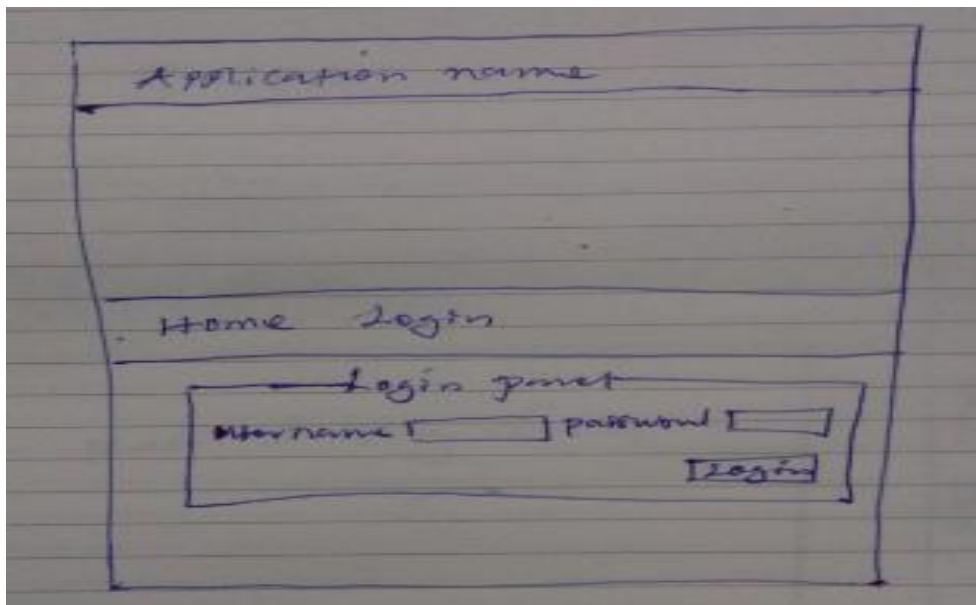 Application name
Home Login
Login panel
username password
Login